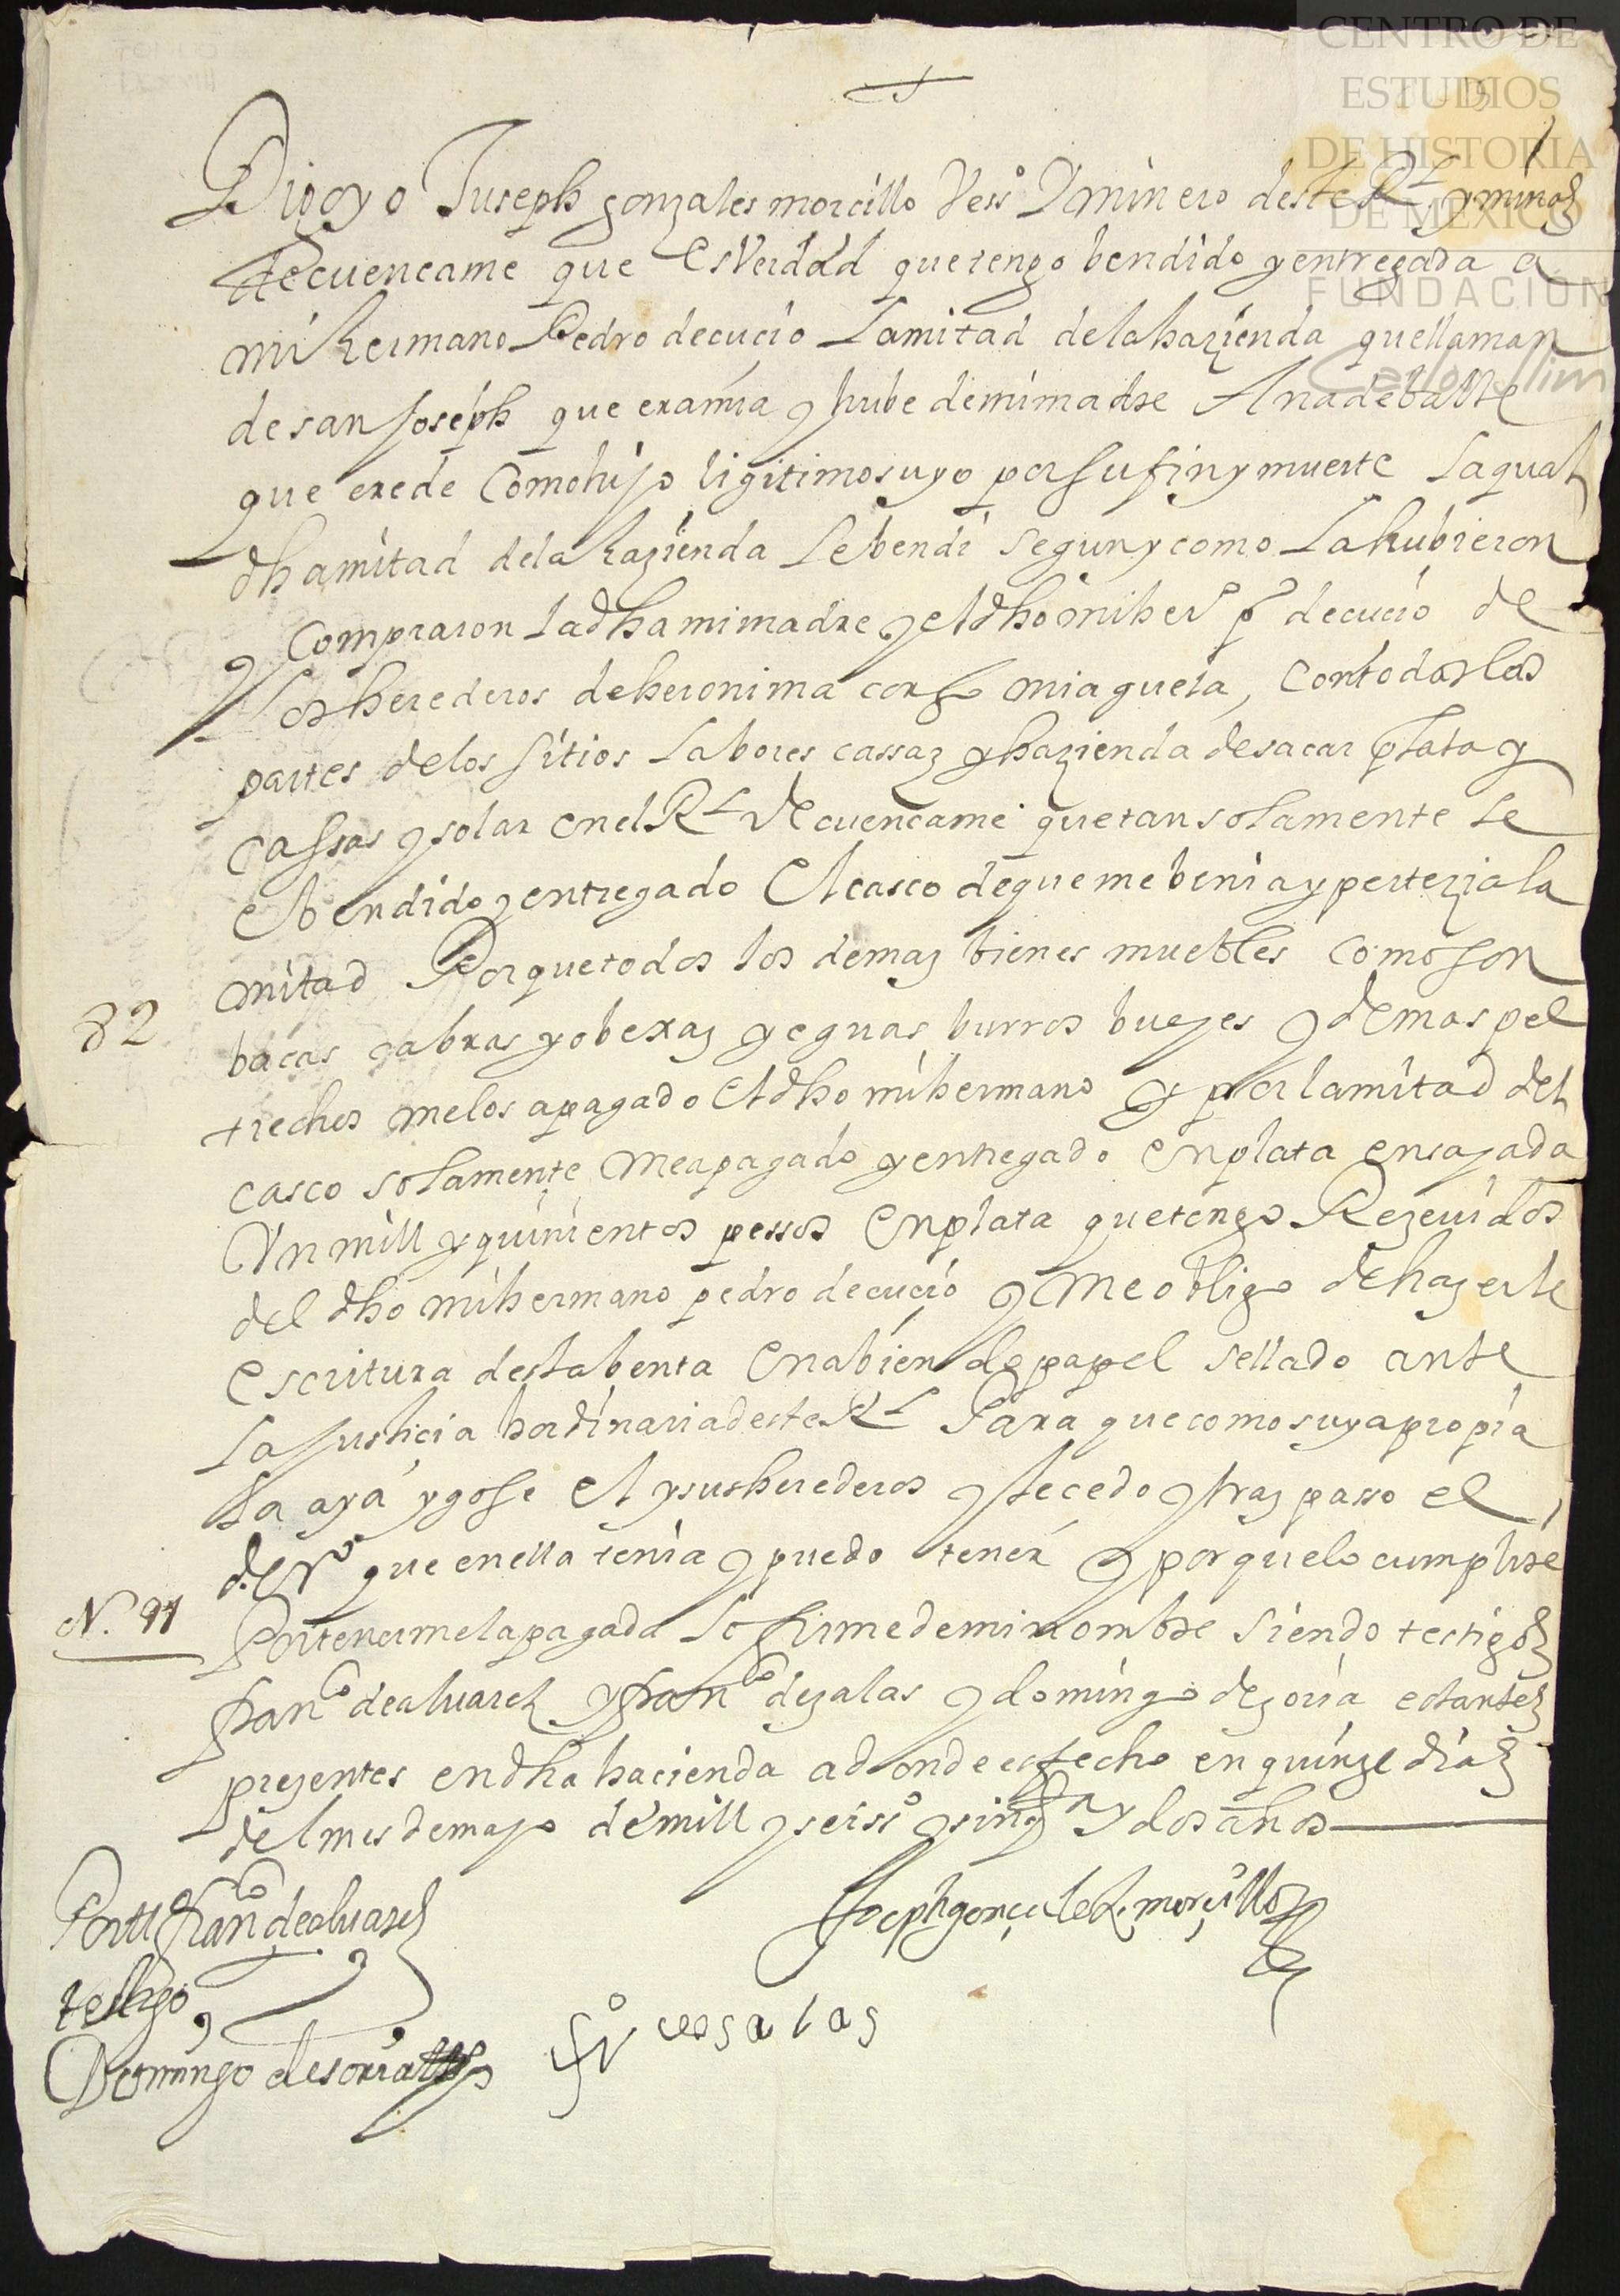 CENTRO DE
ESTUDIOS
DE HISTORIA
DE MEXICO
FUNDACION
Carlos Slim
Digo yo Juseph gonzales morcillo Vess.º Y minero deste Rl y minas
de cuencame que es Verdad que tengo bendido y entregada a
mi hermano Pedro de cucio la mitad de la hazienda que llaman
de san Joseph que era mia y hube de mi madre Ana de balle
que erede como hijo ligitimo suyo por su fin y muerte la qual
dha mitad de la hazienda le bendi segun y como la hubieron
y compraron la dha mi madre y el dho mi herº pº de cucio de
los herederos de heronima mi aguela, con todas las
partes de los sitios labores cassaz y hazienda de sacar plata y
cassas y solar en el Rl de cuencame que tan solamente le
e bendido y entregado el casco de que me benia y pertezia la
mitad Porque todos los demaz bienes muebles como son
bacas cabras y obexaz yeguas burros bueyes y demas pel
82
trechos me los a pagado el dho mi hermano y por la mitad del
casco solamente me a pagado y entregado en plata ensayada
Un mill y quinientos pessos en plata que tengo Rezeuidos
del dho mi hermano pedro de cucio y me obligo de hazerle
escritura desta benta en abiendo papel sellado ante
la justicia hordinaria deste Rl Para que como suya propia
la aya y gose el y sus herederos y le cedo y traz passo el
derº que en ella tenia y puedo tener y porque lo cumplire
N. 91
Por tenermela pagada lo firme de mi nombre siendo testigoz
franco de aluarez y franco de zalas y domingo de zoria estantez
prezentes en dha hacienda adonde es fecho en quinze diaz
del mes de mayo de mill y seissº y sinqta y dos años
Por tt franco de aluarez
Joseph gonçalez morçillo
testigo
fro de salas
Domingo de soria